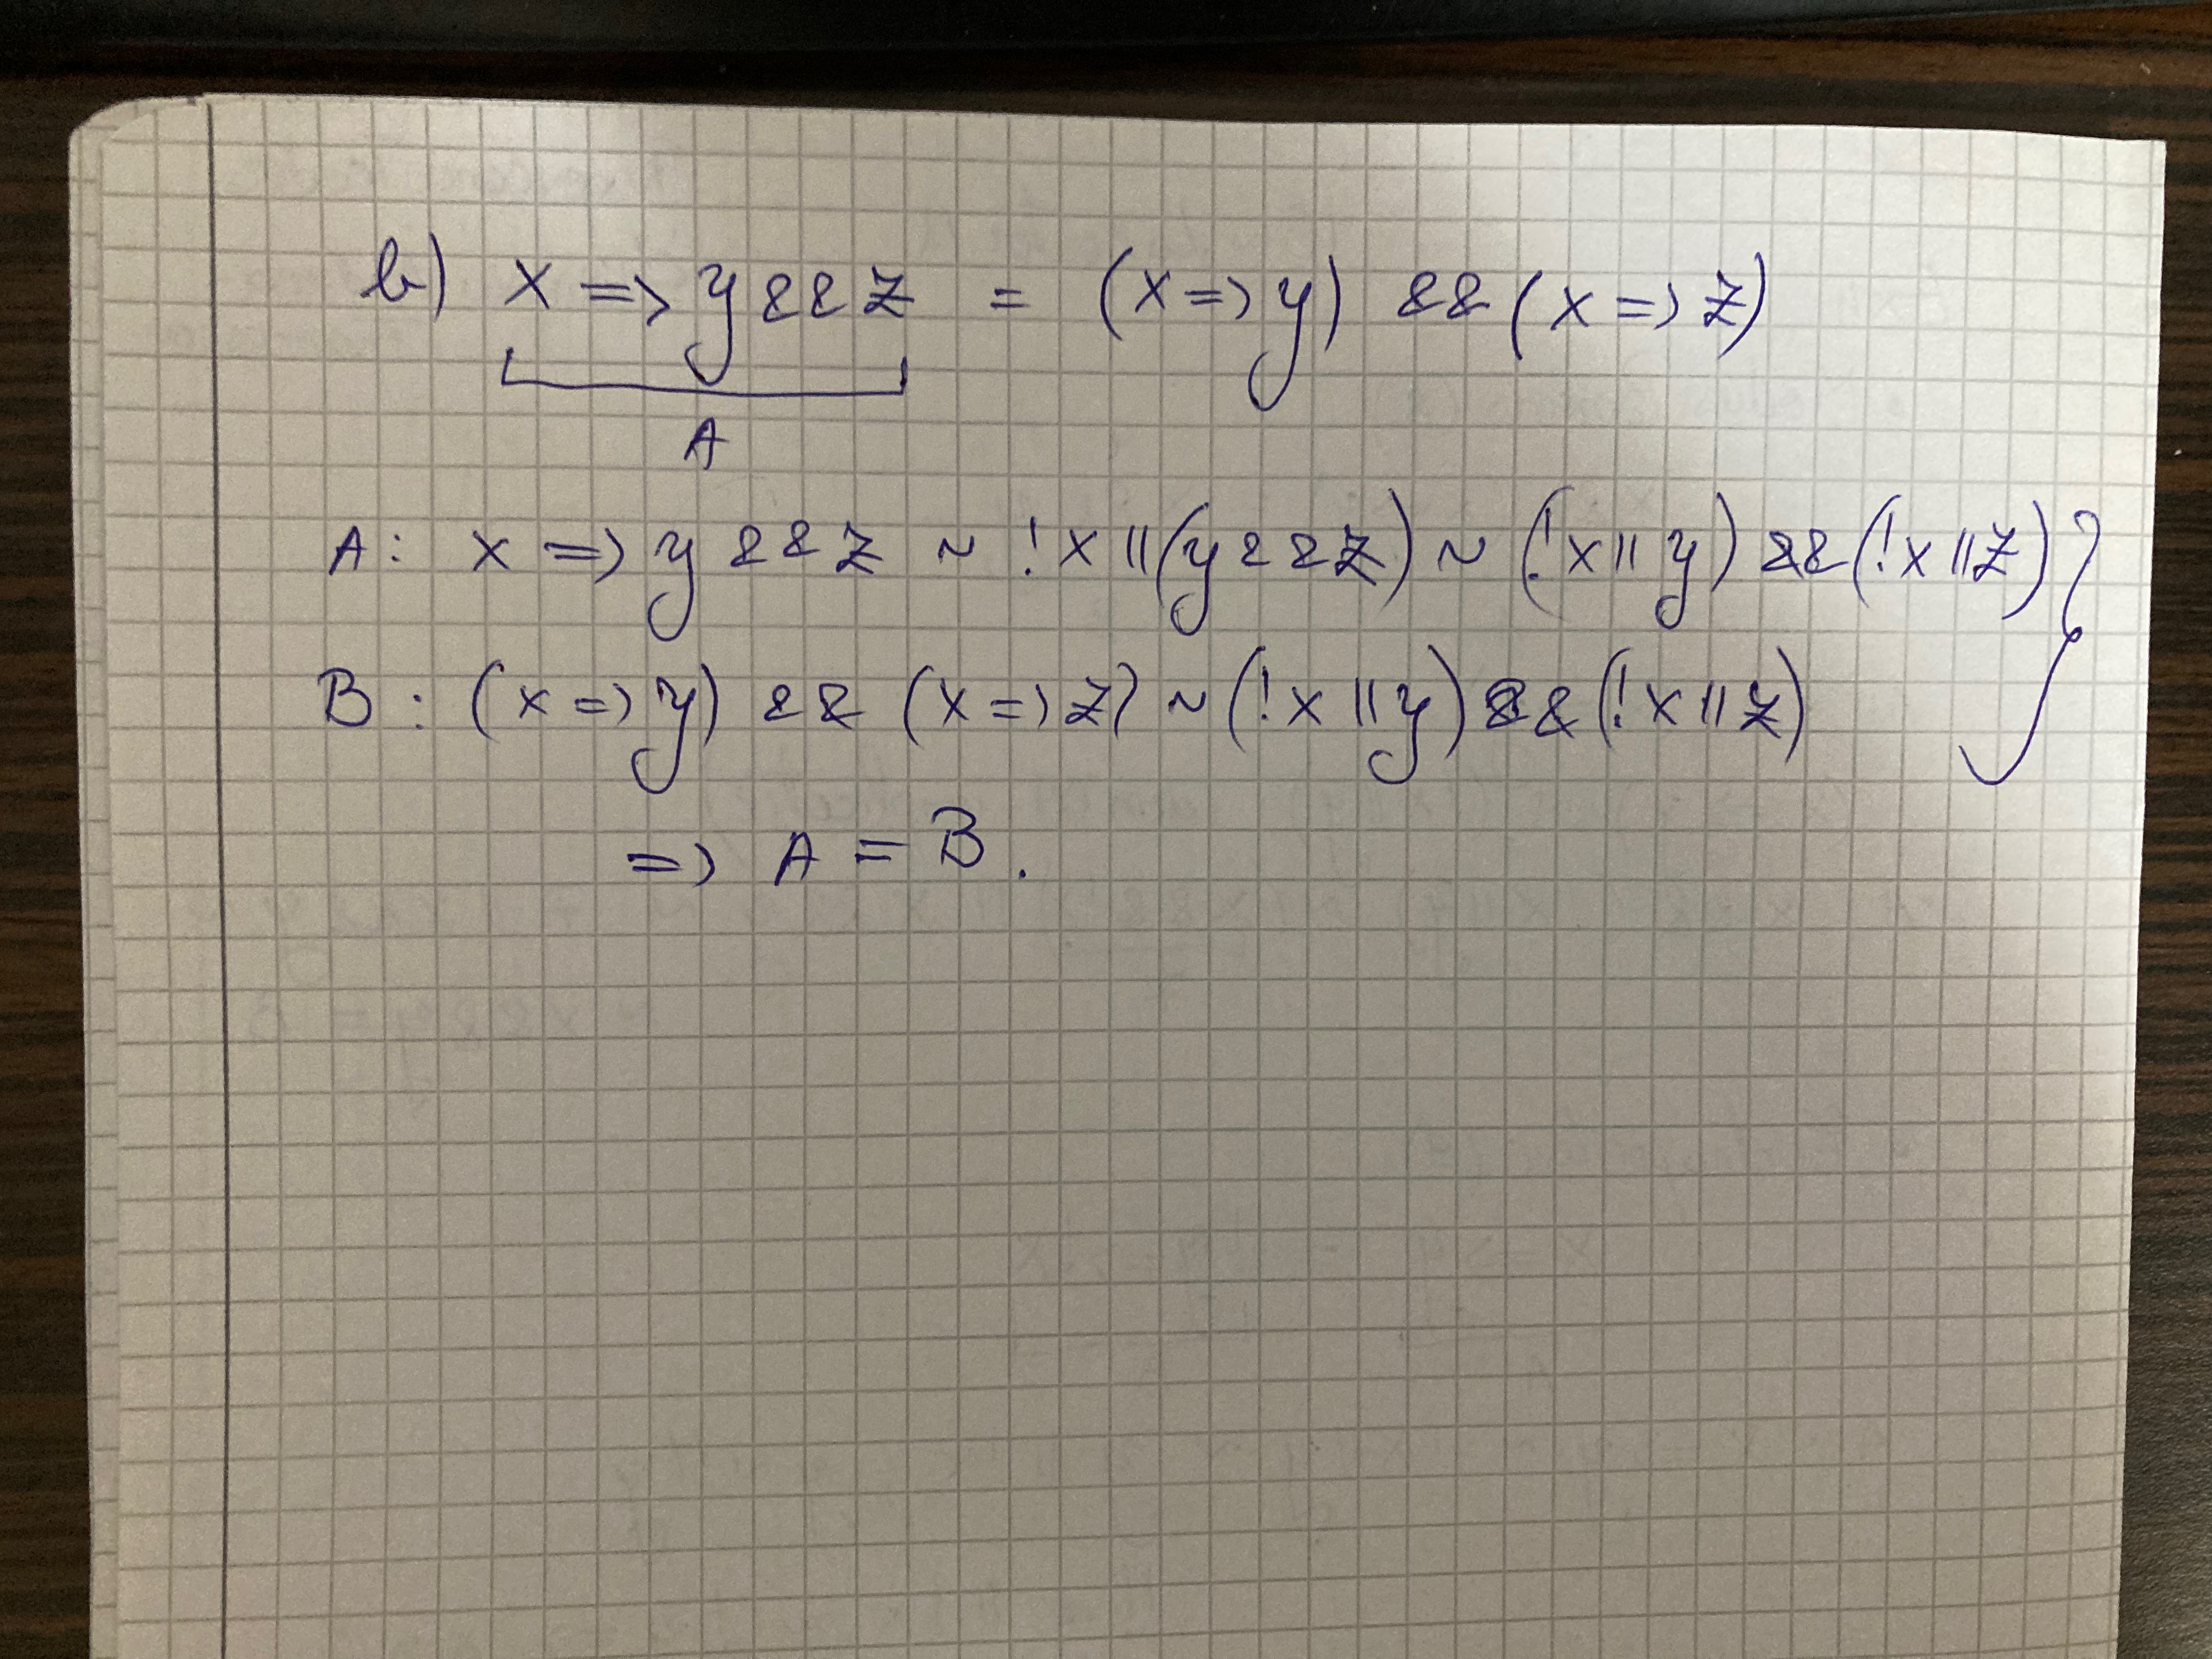 b) x => y && z = (x => y) && (x => z)
A
A: x => y && z ~ !x || (y && z) ~ (!x || y) && (!x || z)
B: (x => y) && (x => z) ~ (!x || y) && (!x || z)
=> A = B.